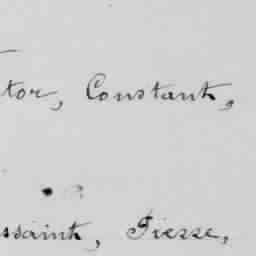 tor, Constant,
ssaint, Piesse,